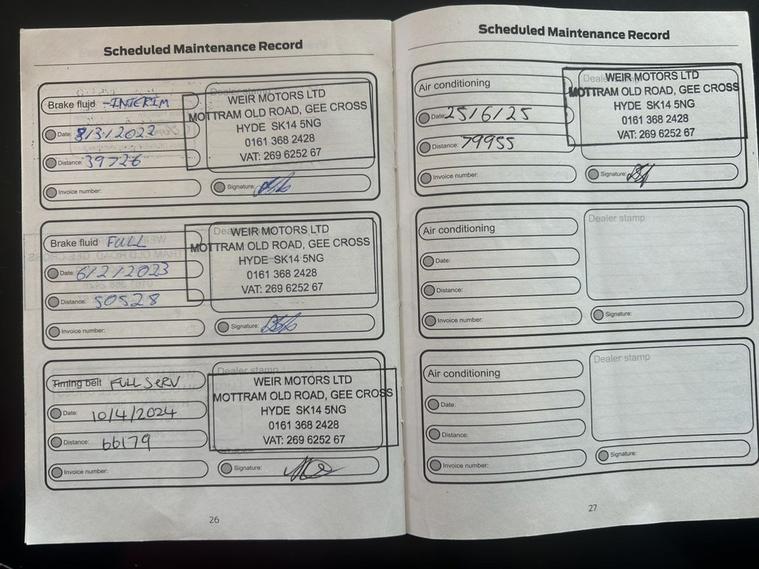 Scheduled Maintenance Record
Brake fluid - INTERIM
Date: 8/3/2022
Distance: 39726
Invoice number:
Dealer stamp
WEIR MOTORS LTD
MOTTRAM OLD ROAD, GEE CROSS
HYDE SK14 5NG
0161 368 2428
VAT: 269 6252 67
Signature:
Brake fluid FULL
Date: 6/2/2023
Distance: 50528
Invoice number:
Dealer stamp
WEIR MOTORS LTD
MOTTRAM OLD ROAD, GEE CROSS
HYDE SK14 5NG
0161 368 2428
VAT: 269 6252 67
Signature:
Timing belt FULL SERV
Date: 10/4/2024
Distance: 66179
Invoice number:
Dealer stamp
WEIR MOTORS LTD
MOTTRAM OLD ROAD, GEE CROSS
HYDE SK14 5NG
0161 368 2428
VAT: 269 6252 67
Signature:
26
Scheduled Maintenance Record
Air conditioning
Date: 25/6/25
Distance: 79955
Invoice number:
Dealer stamp
WEIR MOTORS LTD
MOTTRAM OLD ROAD, GEE CROSS
HYDE SK14 5NG
0161 368 2428
VAT: 269 6252 67
Signature:
Air conditioning
Date:
Distance:
Invoice number:
Dealer stamp
Signature:
Air conditioning
Date:
Distance:
Invoice number:
Dealer stamp
Signature:
27